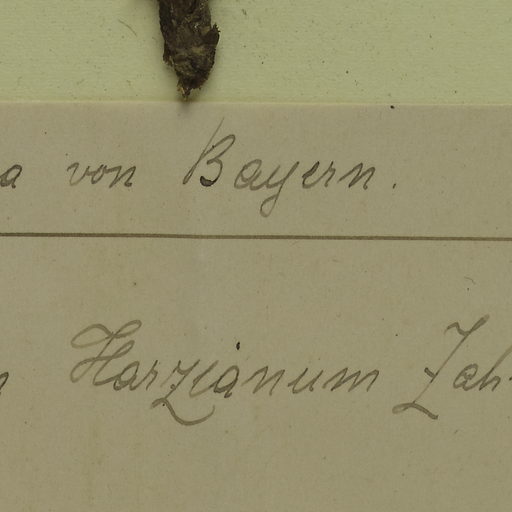 a von Bayern.
Harzianum Zah